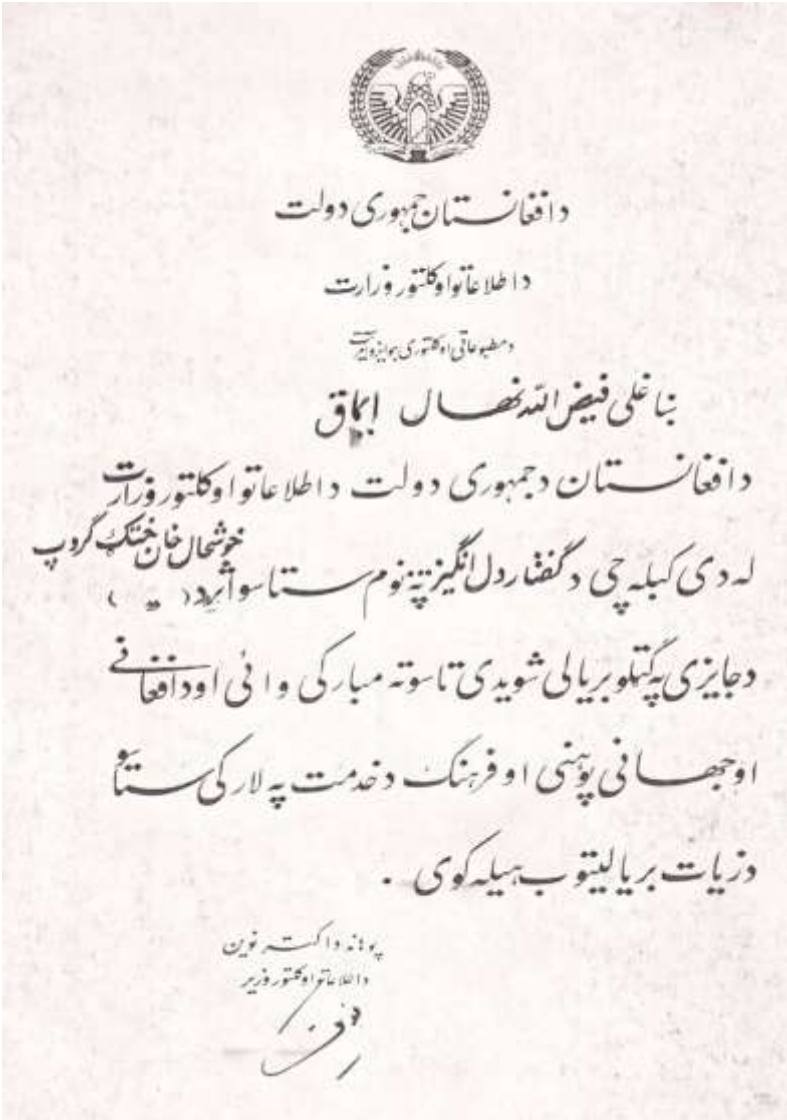 د افغانستان جمهوری دولت
د اطلاعاتو او کلتور وزارت
د مطبوعاتی او کلتوری جوایزو ریاست
ښاغلی فیض الله نهال ایماق
د افغانستان د جمهوری دولت د اطلاعاتو او کلتور وزارت
خوشحال خان خټک گروپ
له دی کبله چی د گفتار دل انگیز په نوم ستاسو اثر د ( )
د جایزی په گټلو بریالی شویدی تاسو ته مبارکی وائی او د افغانی
او جهانی پوهنی او فرهنگ د خدمت په لار کی ستاسو
د زیات بریالیتوب هیله کوی .
پوهاند داکتر نوین
د اطلاعاتو او کلتور وزیر